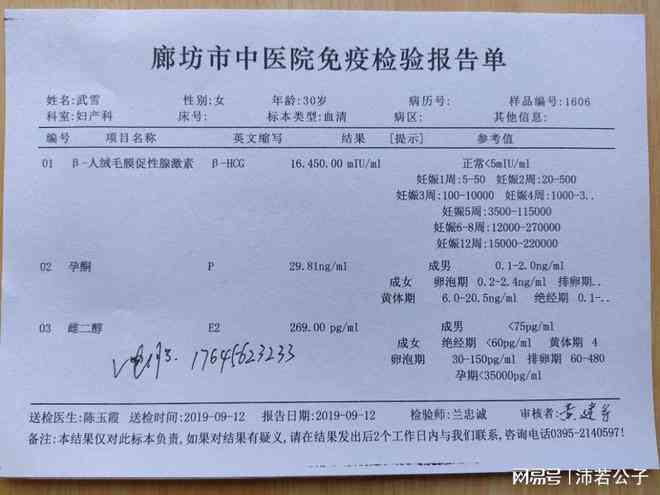 廊坊市中医院免疫检验报告单
姓名:武雪 性别:女 年龄:30岁 病历号: 样品编号:1606
科室:妇产科 床号: 标本类型:血清 病区: 其他信息:
编号 项目名称 英文缩写 结果 [提示] 参考值
01 β-人绒毛膜促性腺激素 β-HCG 16.450.00 mIU/ml 正常<5mIU/ml
妊娠1周:5-50 妊娠2周:20-500
妊娠3周:100-10000 妊娠4周:1000-3..
妊娠5周:3500-115000
妊娠6-8周:12000-270000
妊娠12周:15000-220000
02 孕酮 P 29.81ng/ml 成男 0.1-2.0ng/ml
成女 卵泡期 0.2-2.4ng/ml 排卵期..
黄体期 6.0-20.5ng/ml 绝经期 0.1-..
03 雌二醇 E2 269.00 pg/ml 成男 <75pg/ml
成女 绝经期 <60pg/ml 黄体期 4
卵泡期 30-150pg/ml 排卵期 60-480
孕期<35000pg/ml
17645623233
送检医生:陈玉霞 送检时间:2019-09-12 报告日期:2019-09-12 检验师:兰忠诚 审核者:
备注:本结果仅对此标本负责,如果对结果有疑义,请在结果发出后2个工作日内与我们联系,咨询电话0395-2140597!
网易号|沛若公子